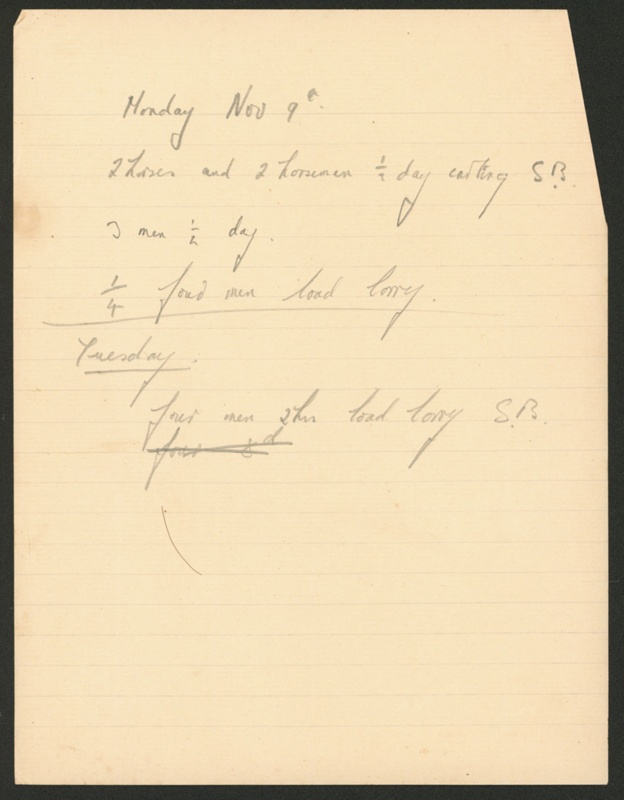 Monday Nov 9th.
2 horses and 2 horsemen ½ day carting S.B.
3 men ½ day.
¼ four men load lorry.
Tuesday.
four men 2hrs load lorry S.B.
four